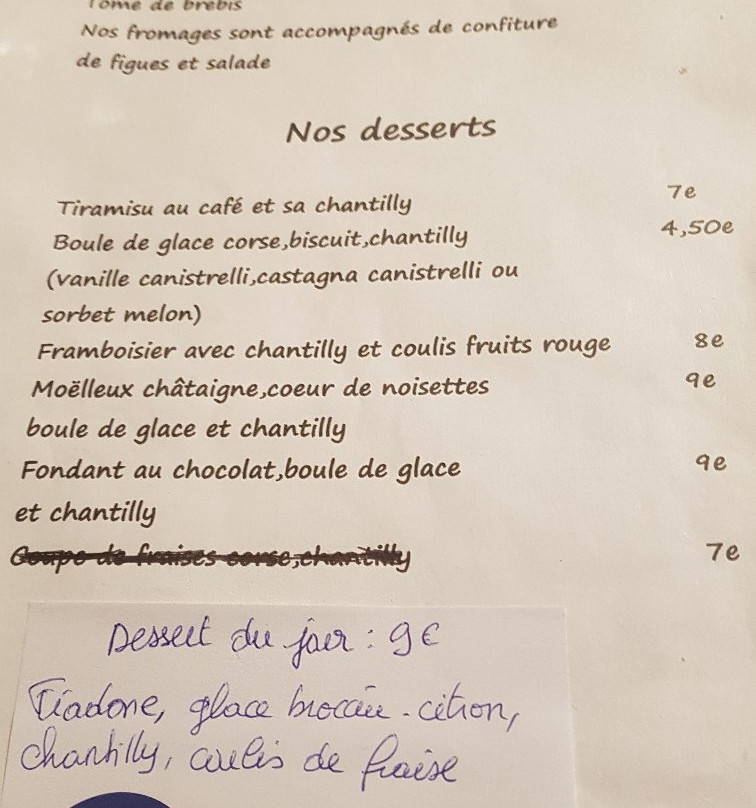 Tome de brebis
Nos fromages sont accompagnés de confiture
de figues et salade
Nos desserts
Tiramisu au café et sa chantilly 7e
Boule de glace corse,biscuit,chantilly 4,50e
(vanille canistrelli,castagna canistrelli ou
sorbet melon)
Framboisier avec chantilly et coulis fruits rouge 8e
Moëlleux châtaigne,coeur de noisettes 9e
boule de glace et chantilly
Fondant au chocolat,boule de glace 9e
et chantilly
Coupe de fraises corse,chantilly 7e
Dessert du jour : 9€
Fiadone, glace brocciu-citron,
chantilly, coulis de fraise